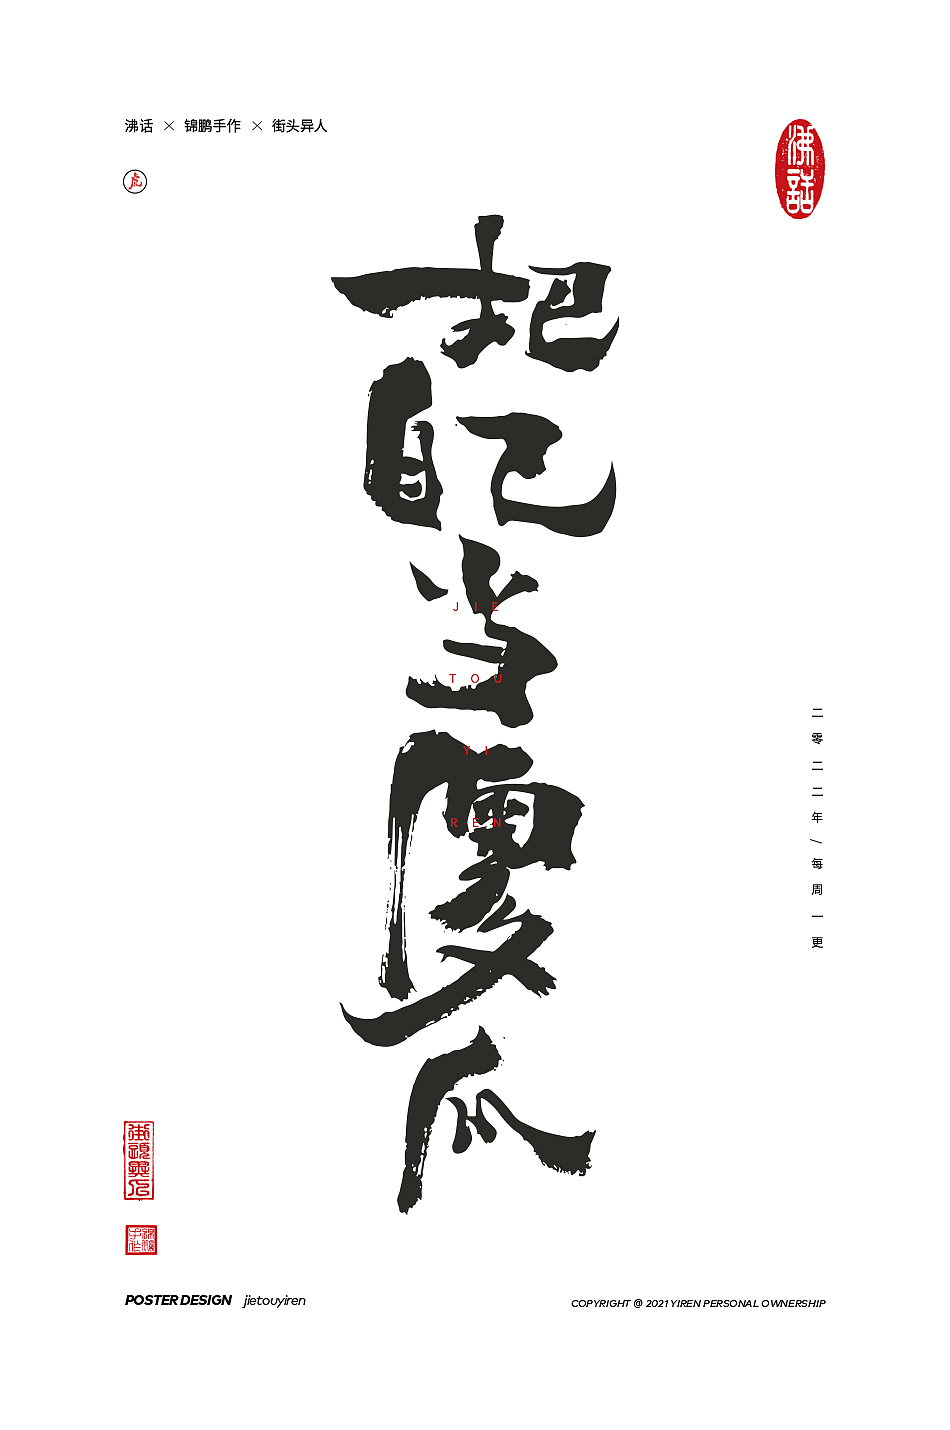 沸话 × 锦鹏手作 × 街头异人
虎
沸話
把自己当傻瓜
JIE
TOU
YI
REN
二零二二年/每周一更
街頭異人
POSTER DESIGN jietouyiren
COPYRIGHT @ 2021 YIREN PERSONAL OWNERSHIP